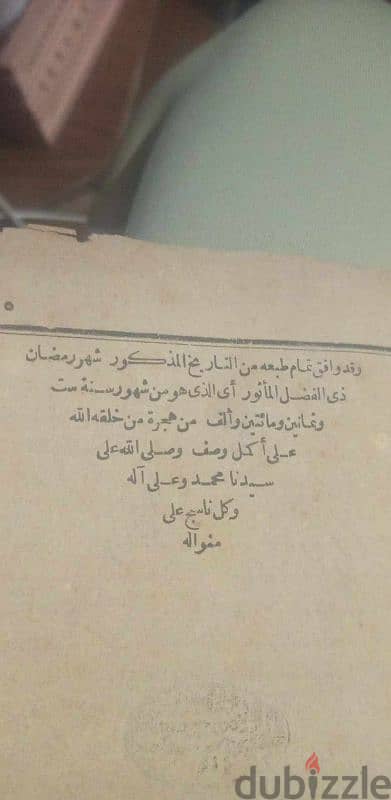 وقد وافق تمام طبعه من التاريخ المذكور شهر رمضان
ذى الفضل المأثور أى الذى هو من شهور سنة ست
وثمانين ومائتين وألف من هجرة من خلقه الله
على أكمل وصف وصلى الله على
سيدنا محمد وعلى آله
وكل ناسج على
منواله
dubizzle